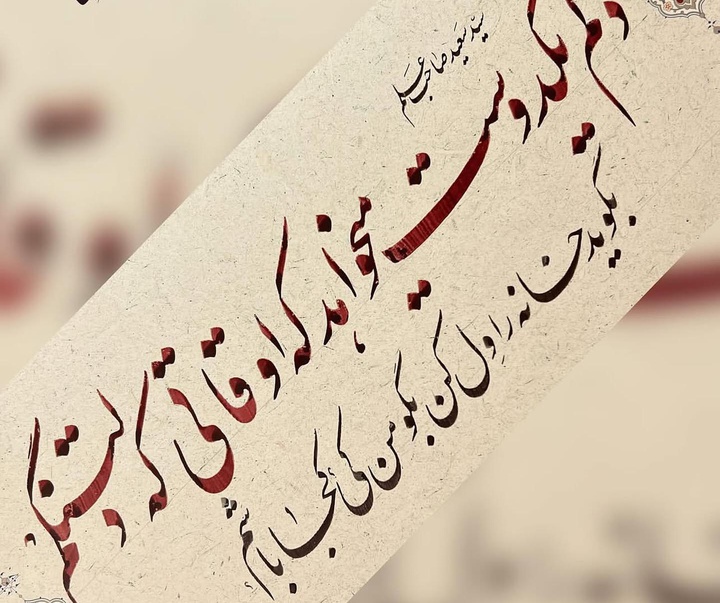 سید سعید صاحب علم
دلم یکدوست میخواهد که اوقاتی که دلتنگم
بگوید خانه را ول کن بگو من کی کجا باشم